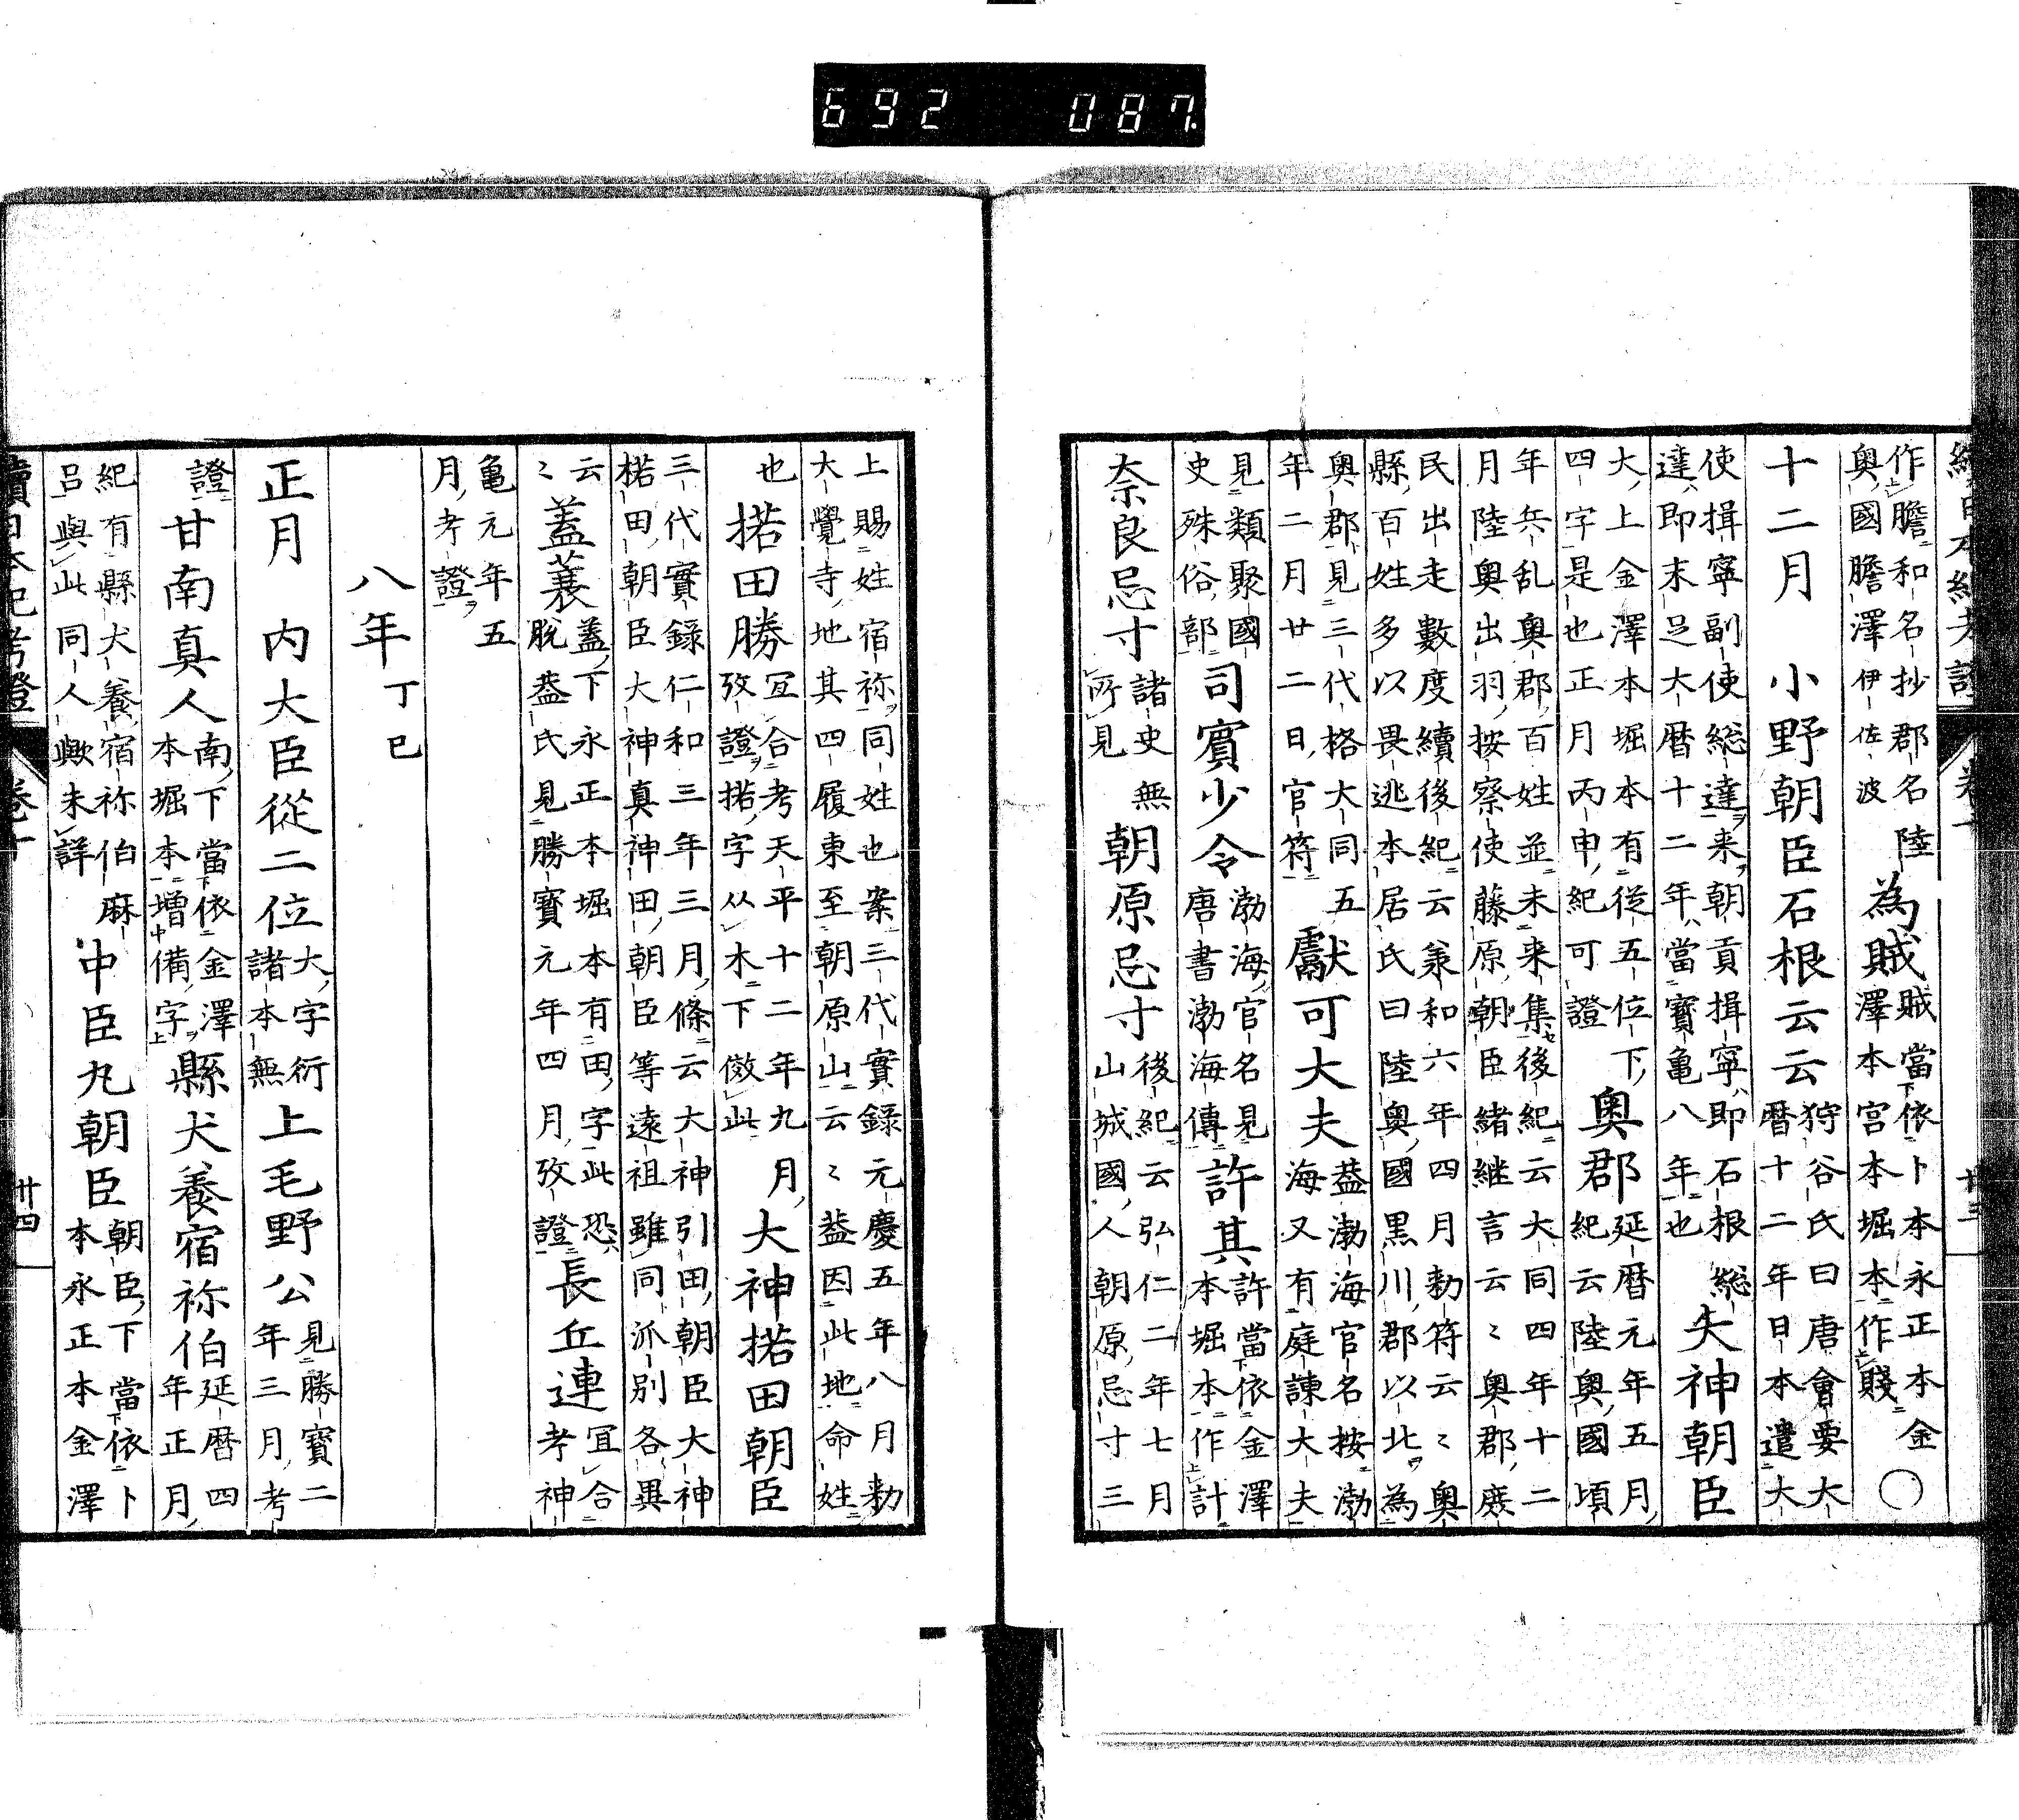 692 087.
作膽和名抄郡名陸
奧國膽澤伊佐波
為賊
賊當依卜本永正本金
澤本宮本堀本作賤
○
十二月 小野朝臣石根云云
狩谷氏曰唐會要大
暦十二年日本遣大
使揖寧副使総達来朝貢揖寧即石根総
達即末足大暦十二年當寳亀八年也
失神朝臣
大上金澤本堀本有従五位下
四字是也正月丙申紀可證
奧郡
延暦元年五月
紀云陸奧國頃
年兵乱奧郡百姓並未来集後紀云大同四年十二
月陸奧出羽按察使藤原朝臣緒継言云〻奧郡廃
民出走數度續後紀云羕和六年四月勅符云〻奧
縣百姓多以畏逃本居氏曰陸奧國黒川郡以北為
奧郡見三代格大同五
年二月廿二日官符
獻可大夫
葢渤海官名按渤
海又有庭諫大夫
見類聚國
史殊俗部
司賓少令
渤海官名見
唐書渤海傳
許其
許當依金澤
本堀本作計
奈良忌寸
諸史無
所見
朝原忌寸
後紀云弘仁二年七月
山城國人朝原忌寸三
續日本紀考證 卷十 廿三
上賜姓宿祢同姓也案三代實錄元慶五年八月勅
大覺寺地其四履東至朝原山云〻葢因此地命姓
也
掿田勝
冝合考天平十二年九月
攷證掿字从木下倣此
大神掿田朝臣
三代實錄仁和三年三月條云大神引田朝臣大神
楉田朝臣大神真神田朝臣等遠祖雖同派別各異
云
〻
蓋蓑
葢下永正本堀本有田字此恐
脫葢氏見勝寳元年四月攷證
長丘連
冝合
考神
亀元年五
月考證
八年 丁巳
正月 内大臣從二位
大字衍
諸本無
上毛野公
見勝寳二
年三月考
證
甘南真人
南下當依金澤
本堀本增備字
縣犬養宿祢伯
延暦四
年正月
紀有縣犬養宿祢伯麻
呂與此同人歟未詳
中臣丸朝臣
朝臣下當依卜
本永正本金澤
續日本紀考證 卷十 廿四